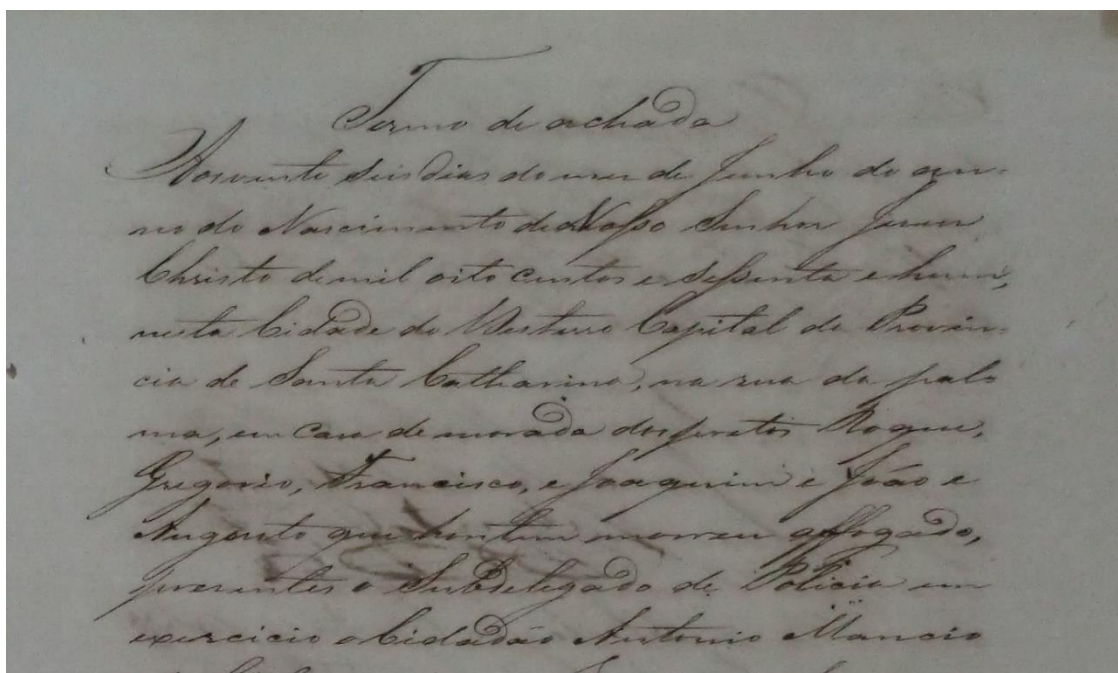 Termo de achada
Aos vinte seis dias do mez de Junho do an-
no do Nascimento de Nosso Senhor Jesus
Christo de mil oito centos e sessenta e hum,
nesta Cidade do Desterro Capital da Provin-
cia de Santa Catharina, na rua da pal-
ma, em casa de morada dos pretos Roque,
Gregorio, Francisco, e Joaquim e João e
Augusto que hontem morreu affogado,
presentes o Subdelegado de Policia em
exercicio o Cidadão Antonio Mancio